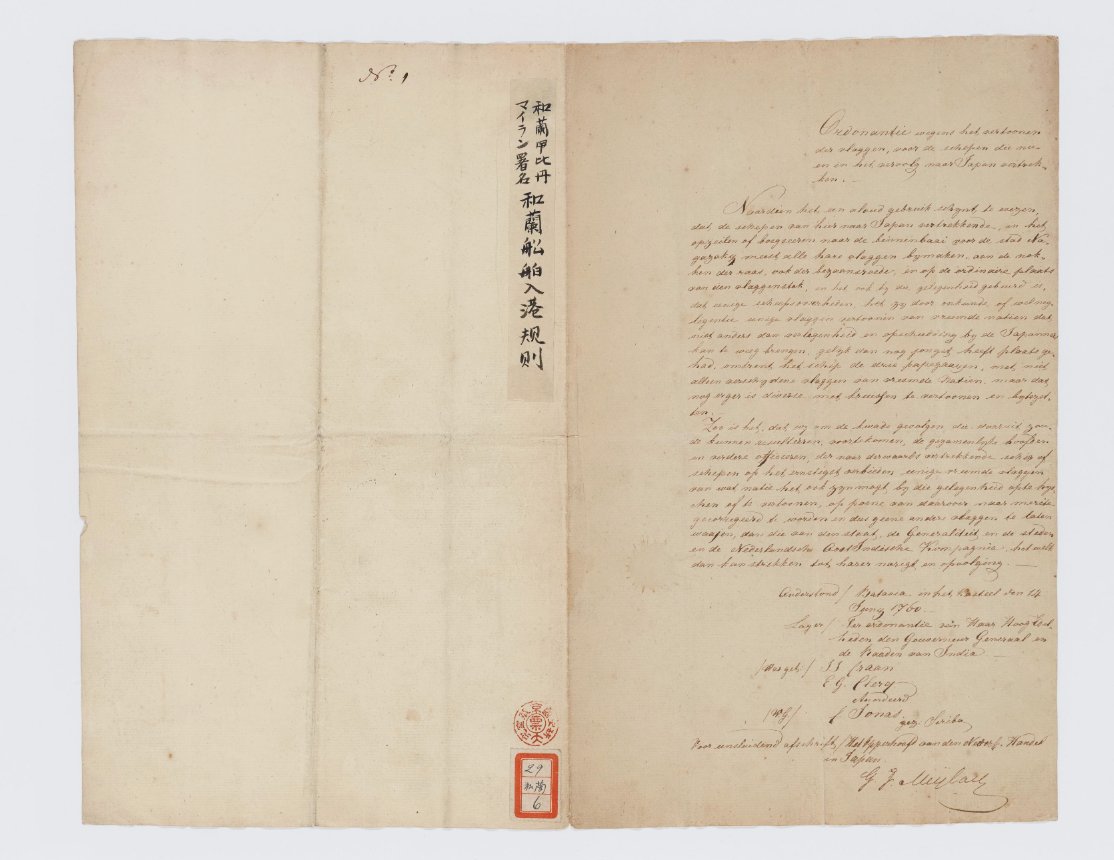 Nº. 1
和蘭甲比丹
マイラン署名
和蘭船舶入港規則
29
蘭
6
Ordonantie wegens het vertoonen
der vlaggen, voor de schepen die nu
en in het vervolg naar Japan vertrek-
ken. —
Naardien het een aloud gebruik schynt te wezen,
dat de schepen van hier naar Japan vertrekkende, in het
opzeilen of boegseeren naar de binnenbaai voor de stad Na-
gazaky meest alle hare vlaggen bymaken, aan de nok-
ken der raas, ook der bezaansroede, en op de ordinaire plaats
van den vlaggenstok, en het ook by die gelegenheid gebeurd is,
dat eenige scheepsoverheden, het zy door onkunde, of wel neg-
ligentie eenige vlaggen vertoonen van vreemde natien dat
niet anders dan verlegenheid en opschudding by de Japanners
kan te weeg brengen, gelyk dan nog jongst heeft plaats ge-
had, omtrent het schip de drie papegaayen, met niet
alleen verscheydene vlaggen van vreemde Natien, maar dat
nog erger is diverse met kruysen te vertoonen en bytezet-
ten.
Zoo is het, dat wy om de kwade gevolgen, die daaruit zou-
de kunnen resulteeren, voortekomen, de gezamenlyke hoofden
en verdere officieren, der naar derwaarts vertrekkende schip of
schepen op het ernstigst verbieden, eenige vreemde vlaggen
van wat natie het ook zyn mogt, by die gelegenheid opte
of te vertoonen, op poene van daarover naar merite
gecorrigeerd te worden en dus geene andere vlaggen te laten
waaijen, dan die van den staat, de Generaliteit en de steden
en de Nederlandsche Oost Indische Kompagnie, het welk
dan kan strekken tot harer narigt en opvolging. —
(Onderstond) Batavia in het Kasteel den 14
Juny 1760. —
Lager) Ter ordonantie van Haar Hoog Edel-
heden den Gouverneur Generaal en
de Raaden van India —
(Was get:) J. J. Craan
E. G.
Accordeerd
(Wg) Jonas
gez. Scriba
Voor eensluidend afschrift, Het Opperhoofd van den Nederl. Handel
in Japan
G. F. Meijlan